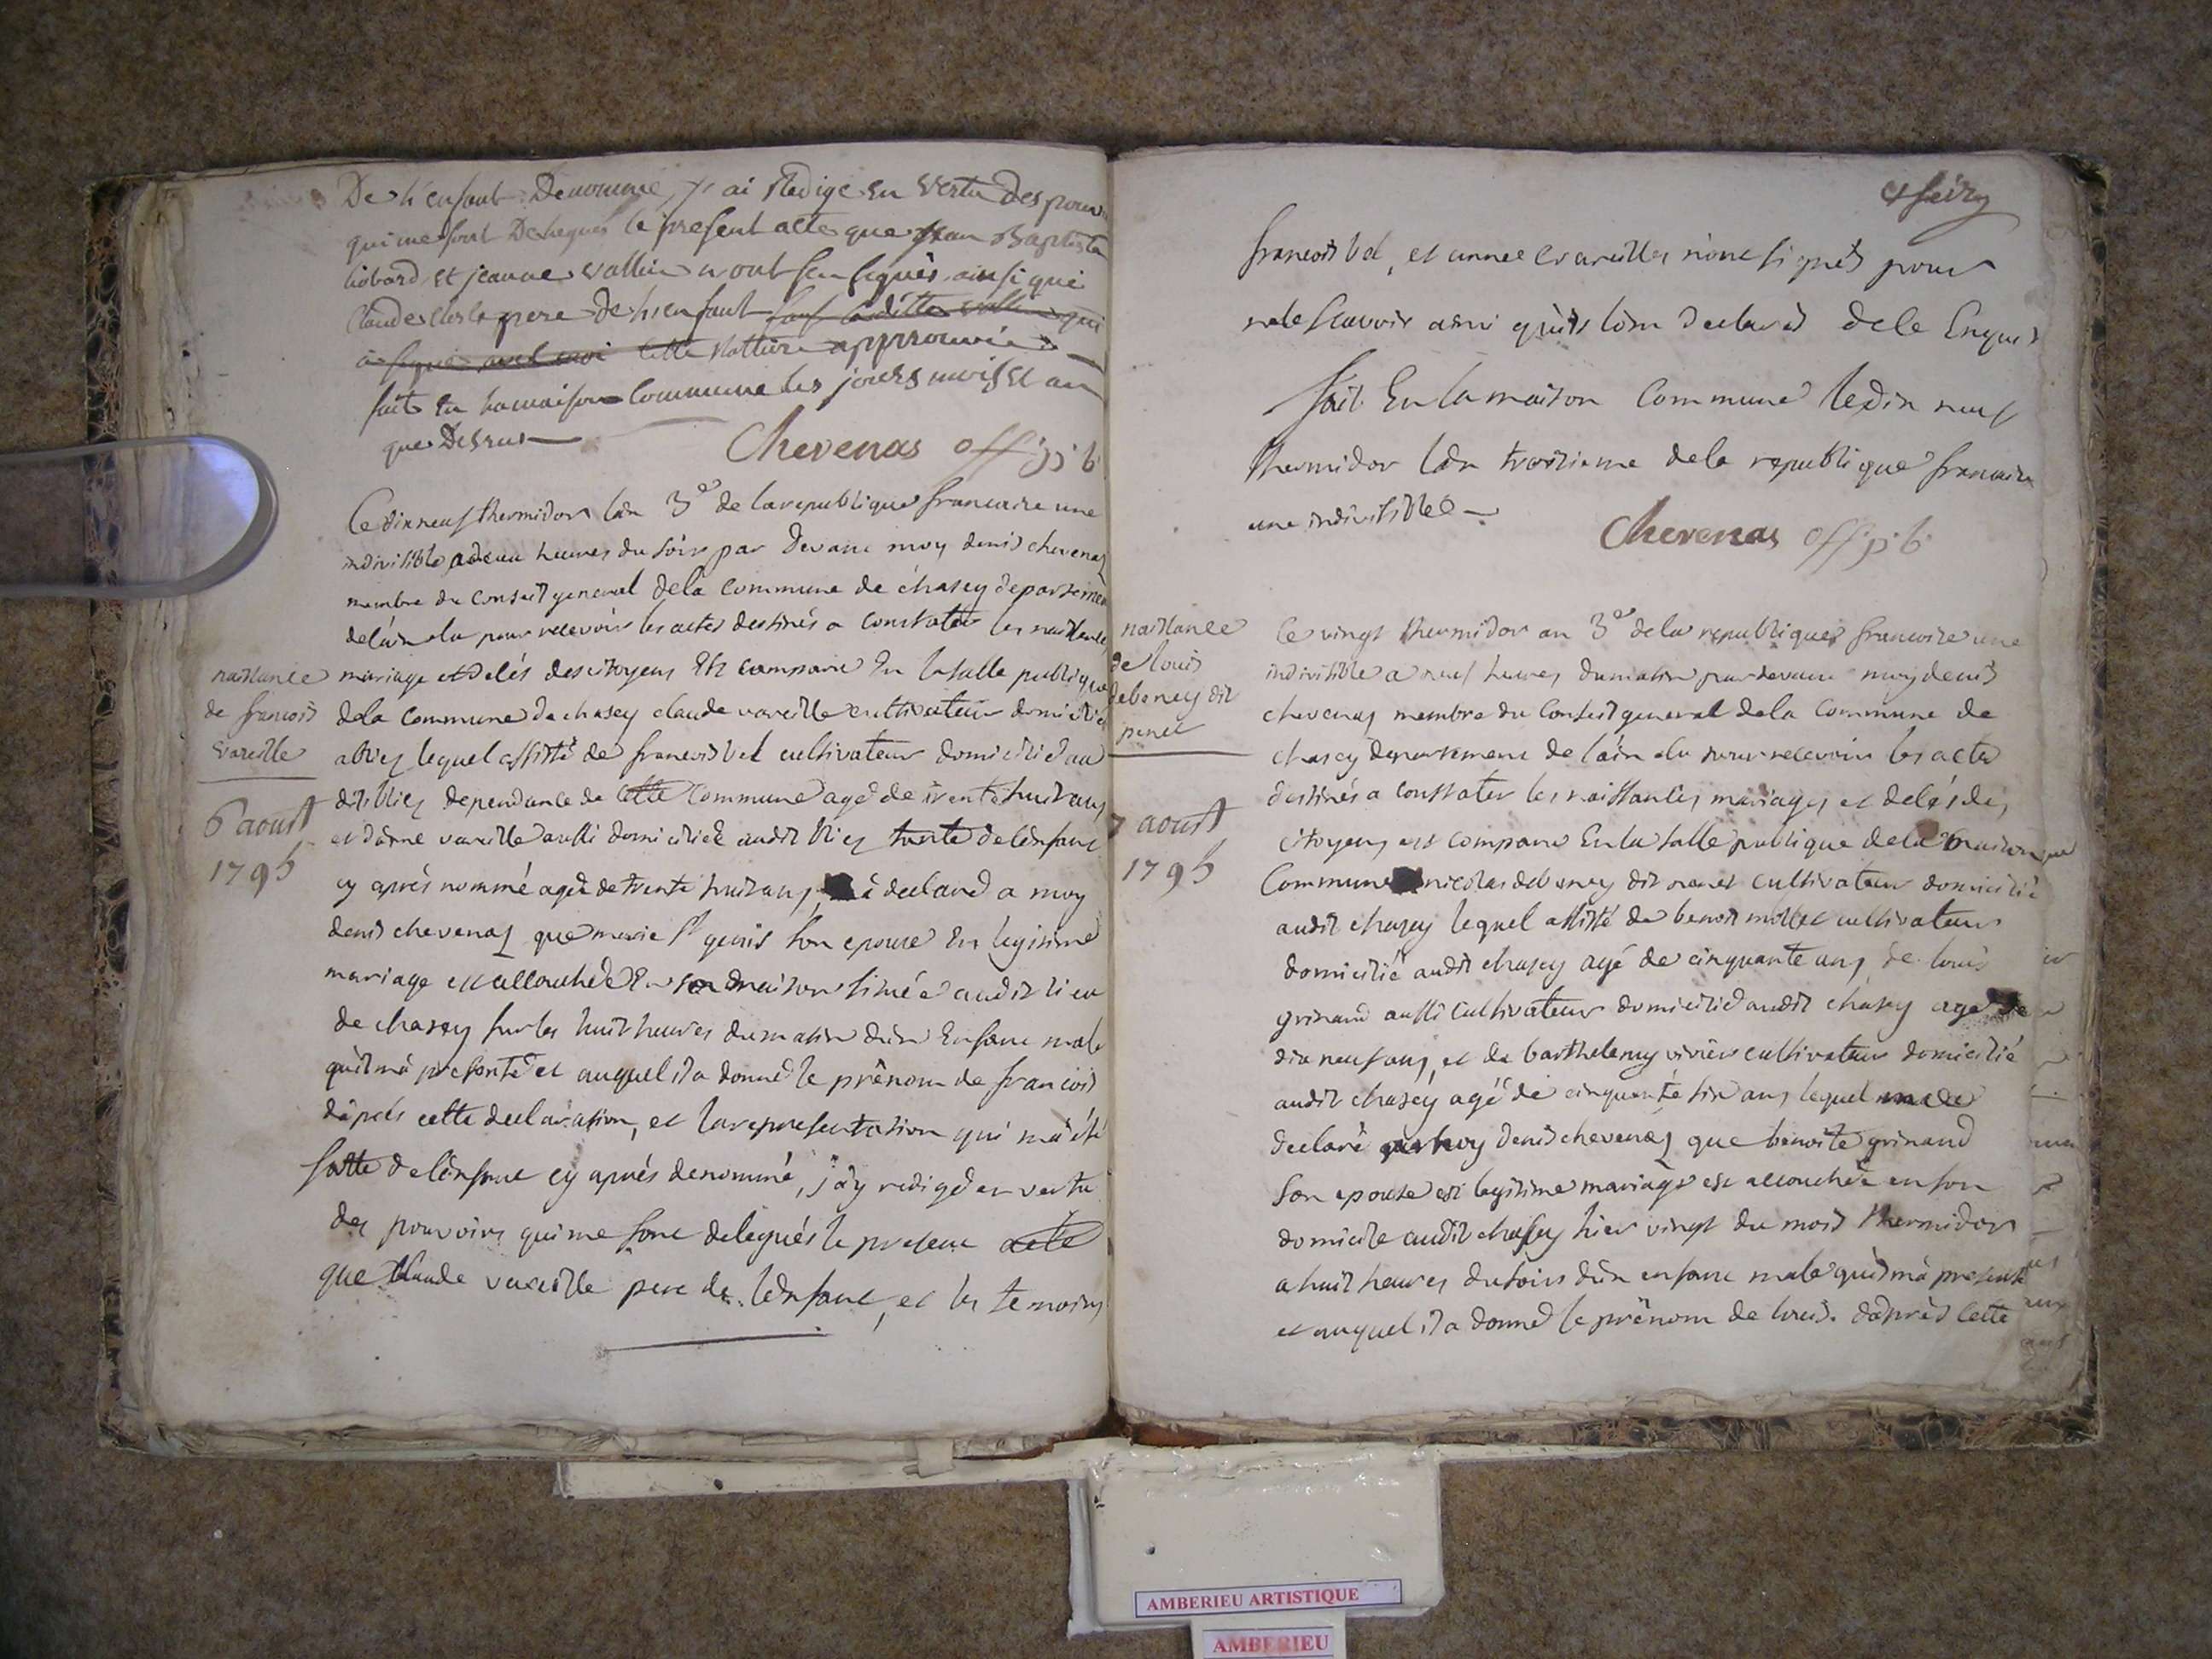 De l'enfant Denommé, J'ai Redigé En Vertu Des pouv
qui me sont Delegués le present acte que Jean Baptiste
liobard et jeanne vallin n ont seu signés ainsi que
Claude pere de l'enfant sauf laditte vallin qui
a signé avec moi cette Natture approuvée
fait En la maison Commune les jours mois et an
que Dessus
Chevenas off. p. b
Ce dix neuf thermidor lan 3e de la republique francaise une
indivisible a deux heures du soir par devant moy denis chevenas
membre du Conseil general dela Commune de chasey departemen
de lain elu pour recevoir les actes destinés a Constater les naissances
mariage et décés des citoyens Est comparu En la salle publique
dela Commune de chasey claude vareille cultivateur domicilié
a bliez lequel assisté de francois bel cultivateur domicilié au
dit bliez dependance de cette Commune agé de trente huit ans
et d'anne vareille aussi domiciliée audit bliez tante de lenfant
cy aprés nommé agée de trente huit ans, à declaré a moy
denis chevenas que marie St genis son epouse En legitime
mariage est allouchée En sa maison située audit lieu
de chasey sur les huit heures du matin dun Enfant male
quil mà presenté et auquel il a donné le prénom de francois
dàprés cette declaration, et la representation qui mà été
faitte de lenfant cy aprés denommé, jày redigé en vertu
des pouvoirs qui me sont delegués le present acte
que Claude vareille pere de lenfant, et les temoins
naissance
de francois
vareille
6 aoust
1795
francois bel, et annee vareilles n'ont signés pour
ne le scavoir ainsi quils lòn declarés de le Enquis
fait En la maison Commune le dix neuf
thermidor lan troisieme dela republique francaise
une indivisible
Chevenas off. p. b.
naissance
de louis
debeney dit
penet
7 aoust
1795
Ce vingt thermidor an 3e de la republique francoise une
indivisible a neuf heures du matin par devant moy denis
chevenas membre du Conseil general dela Commune de
chasey departement de lain elu pour recevoir les actes
destinés a Constater les naissances, mariages, et décés des
citoyens, est comparu En la salle publique dela maison
Commune nicolas debeney dit penet cultivateur domicilié
audit chasey lequel assisté de benoit mollet cultivateur
domicilié audit chasey agé de cinquante ans, de louis
grinand aussi cultivateur domicilié audit chasey agé de
dix neuf ans, et de barthelemy vivier cultivateur domicilié
audit chasey agé de cinquante six ans lequel
declaré denis chevenas que benoite grinand
son epouse en legitime mariage est accouchée en son
domicile audit chasey hier vingt du mois thermidor
a huit heures du soir dun enfant male quil mà presenté
et auquel il a donné le prénom de louis. dàprés cette
AMBERIEU ARTISTIQUE
AMBERIEU